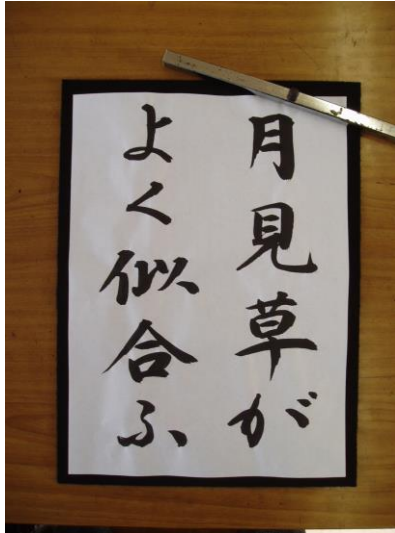 月見草が
よく似合ふ